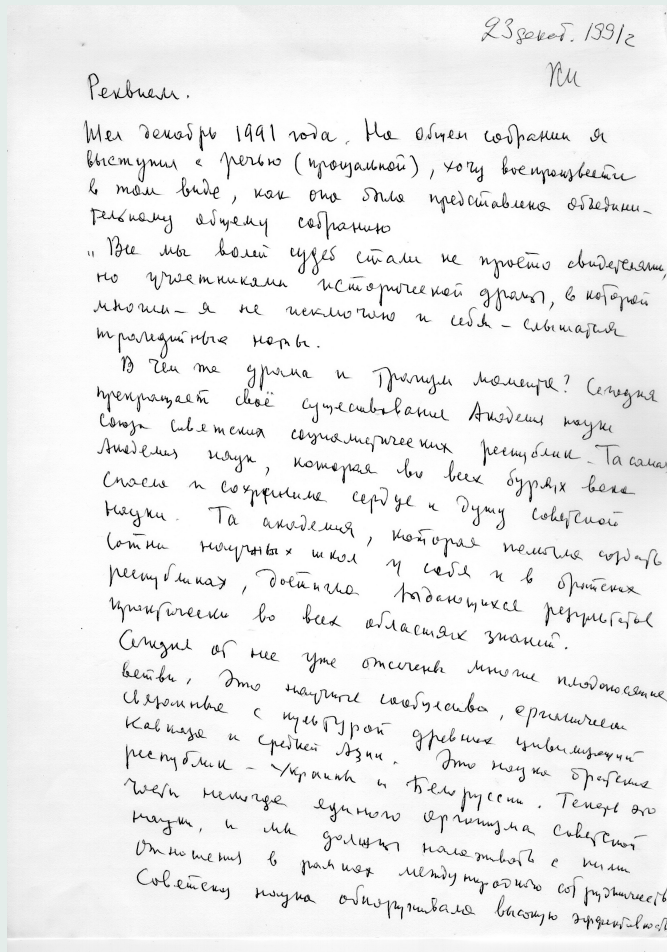 23 декаб. 1991 г
Реквием.
Шел декабрь 1991 года. На общем собрании я
выступил с речью (прощальной), хочу воспроизвести
в том виде, как она была представлена объедини-
тельному общему собранию
„Все мы волей судеб стали не просто свидетелями,
но участниками исторической драмы, в которой
многим – я не исключаю и себя – слышатся
трагедийные ноты.
В чем же драма и трагизм момента? Сегодня
прекращает своё существование Академия наук
Союза советских социалистических республик. Та самая
Академия наук, которая во всех бурях века
спасла и сохранила сердце и душу советской
науки. Та академия, которая помогла создать
сотни научных школ у себя и в братских
республиках, достигла выдающихся результатов
практически во всех областях знаний.
Сегодня от нее уже отсечены многие плодоносящие
ветви. Это научные сообщества, органически
связанные с культурой древних цивилизаций
Кавказа и Средней Азии. Это наука братских
республик – Украины и Белоруссии. Теперь это
части некогда единого организма советской
науки, и мы должны налаживать с ними
отношения в рамках международного сотрудничества
Советская наука обнаруживала высокую эффективность